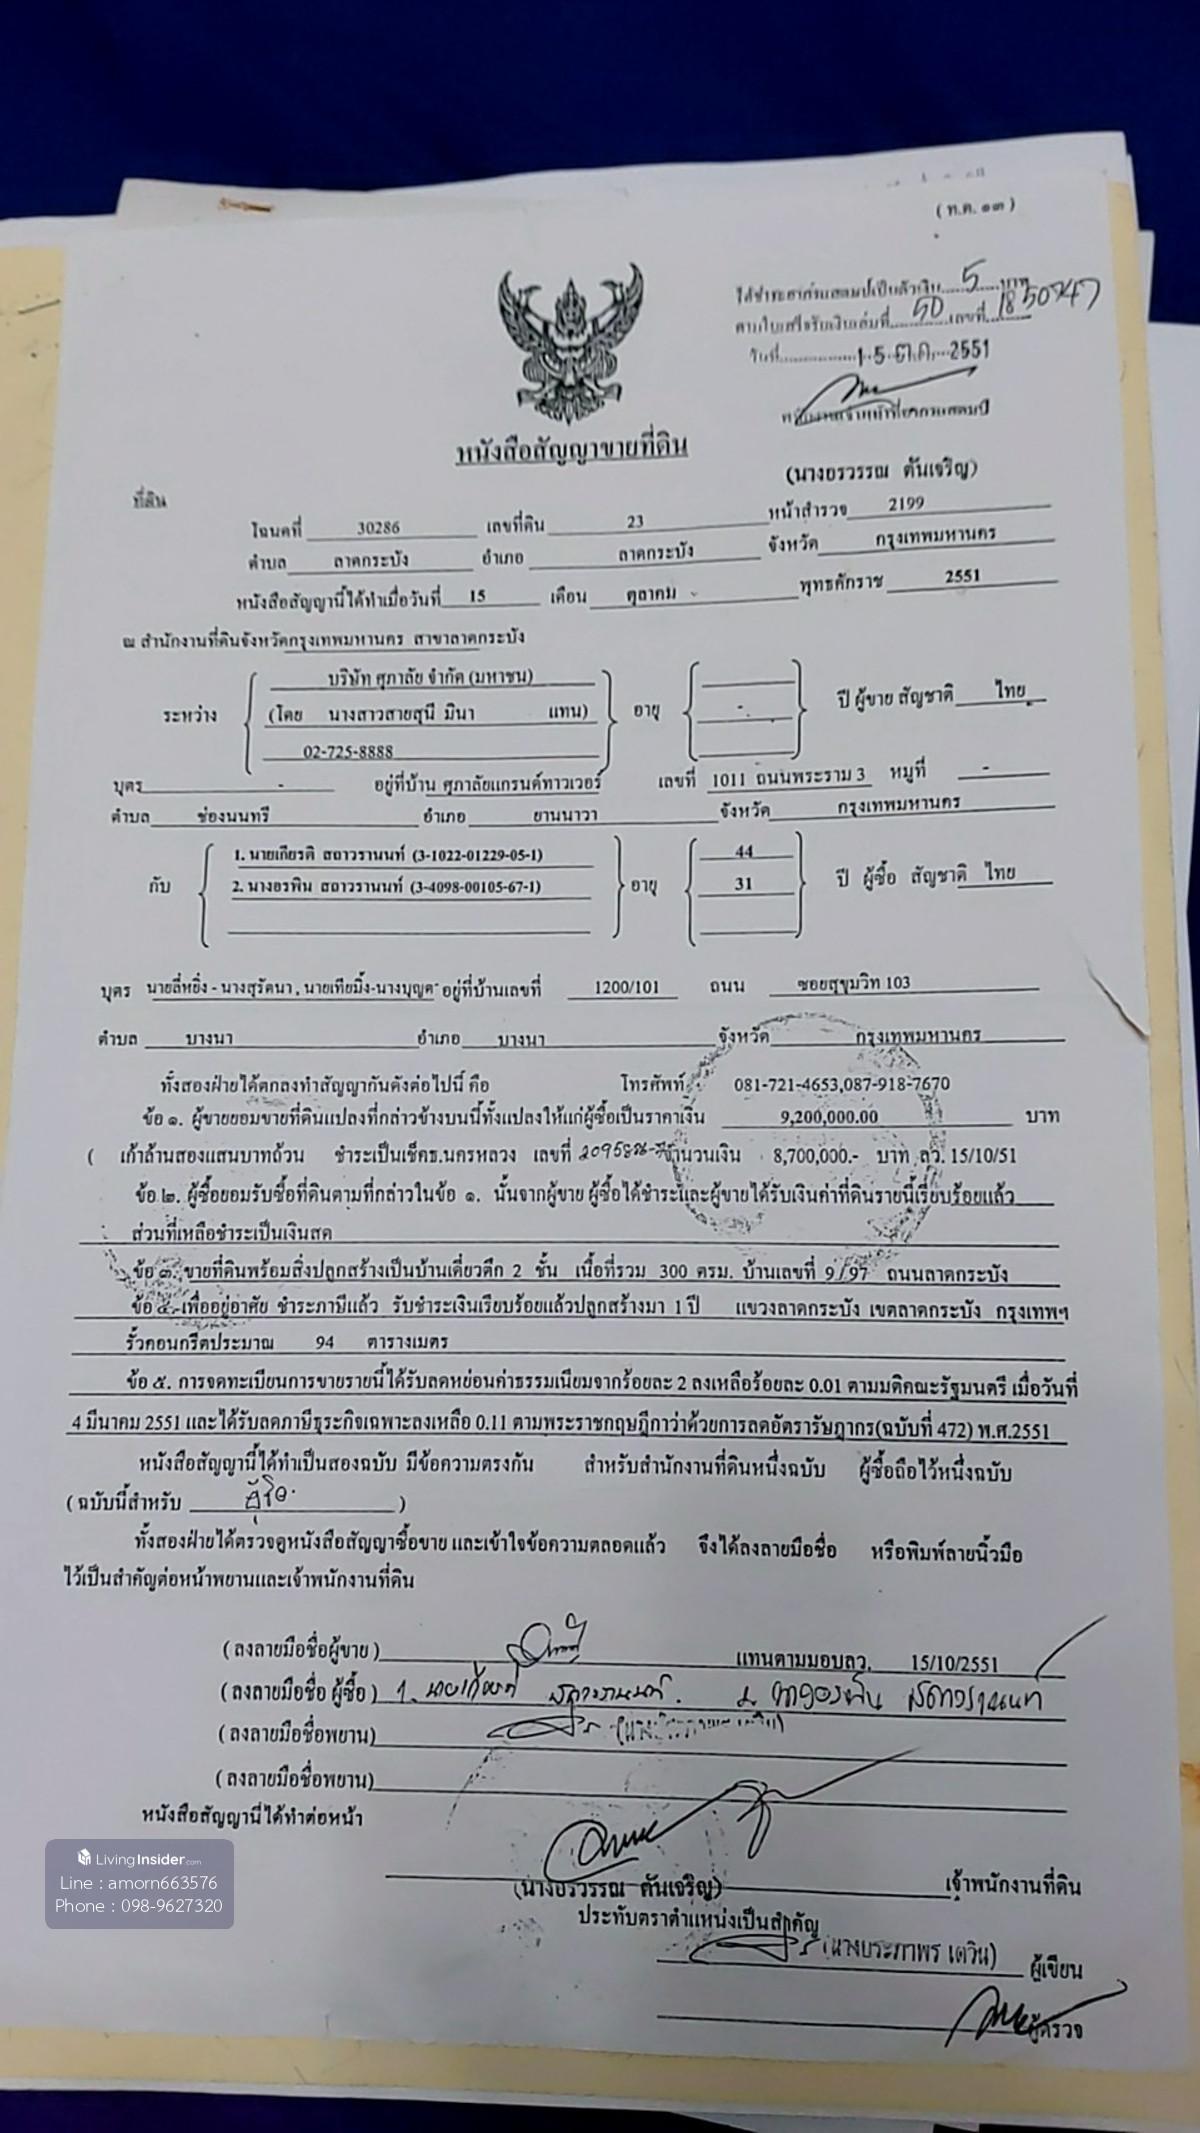 ( ท.ด. ๑๓ )
ได้ชำระอากรแสตมป์เป็นตัวเงิน 5 บาท
ตามใบเสร็จรับเงินเล่มที่ 50 เลขที่ 1850747
วันที่ 15 ต.ค. 2551
พนักงานเจ้าหน้าที่อากรแสตมป์
หนังสือสัญญาขายที่ดิน
(นางอรวรรณ ตันเจริญ)
ที่ดิน
โฉนดที่ 30286 เลขที่ดิน 23 หน้าสำรวจ 2199
ตำบล ลาดกระบัง อำเภอ ลาดกระบัง จังหวัด กรุงเทพมหานคร
หนังสือสัญญานี้ได้ทำเมื่อวันที่ 15 เดือน ตุลาคม พุทธศักราช 2551
ณ สำนักงานที่ดินจังหวัดกรุงเทพมหานคร สาขาลาดกระบัง
บริษัท ศุภาลัย จำกัด (มหาชน)
ระหว่าง (โดย นางสาวสายสุนี มีนา แทน) อายุ - ปี ผู้ขาย สัญชาติ ไทย
02-725-8888
บุตร - อยู่ที่บ้าน ศุภาลัยแกรนด์ทาวเวอร์ เลขที่ 1011 ถนนพระราม 3 หมู่ที่ -
ตำบล ช่องนนทรี อำเภอ ยานนาวา จังหวัด กรุงเทพมหานคร
1. นายเกียรติ สถาวรานนท์ (3-1022-01229-05-1) 44
กับ 2. นางอรพิน สถาวรานนท์ (3-4098-00105-67-1) อายุ 31 ปี ผู้ซื้อ สัญชาติ ไทย
บุตร นายลี่หยิ่ง - นางสุรัตนา , นายเทียมิ้ง-นางบุญค อยู่ที่บ้านเลขที่ 1200/101 ถนน ซอยสุขุมวิท 103
ตำบล บางนา อำเภอ บางนา จังหวัด กรุงเทพมหานคร
ทั้งสองฝ่ายได้ตกลงทำสัญญากันดังต่อไปนี้ คือ โทรศัพท์ 081-721-4653,087-918-7670
ข้อ ๑. ผู้ขายยอมขายที่ดินแปลงที่กล่าวข้างบนนี้ทั้งแปลงให้แก่ผู้ซื้อเป็นราคาเงิน 9,200,000.00 บาท
( เก้าล้านสองแสนบาทถ้วน ชำระเป็นเช็คธ.นครหลวง เลขที่ จำนวนเงิน 8,700,000.- บาท ลว. 15/10/51
ข้อ ๒. ผู้ซื้อยอมรับซื้อที่ดินตามที่กล่าวในข้อ ๑. นั้นจากผู้ขาย ผู้ซื้อได้ชำระและผู้ขายได้รับเงินค่าที่ดินรายนี้เรียบร้อยแล้ว
ส่วนที่เหลือชำระเป็นเงินสด
ข้อ ๓. ขายที่ดินพร้อมสิ่งปลูกสร้างเป็นบ้านเดี่ยวตึก 2 ชั้น เนื้อที่รวม 300 ตรม. บ้านเลขที่ 9/97 ถนนลาดกระบัง
ข้อ ๔. เพื่ออยู่อาศัย ชำระภาษีแล้ว รับชำระเงินเรียบร้อยแล้วปลูกสร้างมา 1 ปี แขวงลาดกระบัง เขตลาดกระบัง กรุงเทพฯ
รั้วคอนกรีตประมาณ 94 ตารางเมตร
ข้อ ๕. การจดทะเบียนการขายรายนี้ได้รับลดหย่อนค่าธรรมเนียมจากร้อยละ 2 ลงเหลือร้อยละ 0.01 ตามมติคณะรัฐมนตรี เมื่อวันที่
4 มีนาคม 2551 และได้รับลดภาษีธุระกิจเฉพาะลงเหลือ 0.11 ตามพระราชกฤษฎีกาว่าด้วยการลดอัตรารัษฎากร(ฉบับที่ 472) พ.ศ.2551
หนังสือสัญญานี้ได้ทำเป็นสองฉบับ มีข้อความตรงกัน สำหรับสำนักงานที่ดินหนึ่งฉบับ ผู้ซื้อถือไว้หนึ่งฉบับ
( ฉบับนี้สำหรับ ผู้ซื้อ )
ทั้งสองฝ่ายได้ตรวจดูหนังสือสัญญาซื้อขาย และเข้าใจข้อความตลอดแล้ว จึงได้ลงลายมือชื่อ หรือพิมพ์ลายนิ้วมือ
ไว้เป็นสำคัญต่อหน้าพยานและเจ้าพนักงานที่ดิน
( ลงลายมือชื่อผู้ขาย ) แทนตามมอบลว. 15/10/2551
( ลงลายมือชื่อ ผู้ซื้อ ) 1. นายเกียรติ สถาวรานนท์. 2. นางอรพิน สถาวรานนท์
( ลงลายมือชื่อพยาน)
( ลงลายมือชื่อพยาน)
หนังสือสัญญานี้ได้ทำต่อหน้า
(นางอรวรรณ ตันเจริญ) เจ้าพนักงานที่ดิน
ประทับตราตำแหน่งเป็นสำคัญ
(นางประภาพร เดวิน) ผู้เขียน
ผู้ตรวจ
LivingInsider.com
Line : amorn663576
Phone : 098-9627320